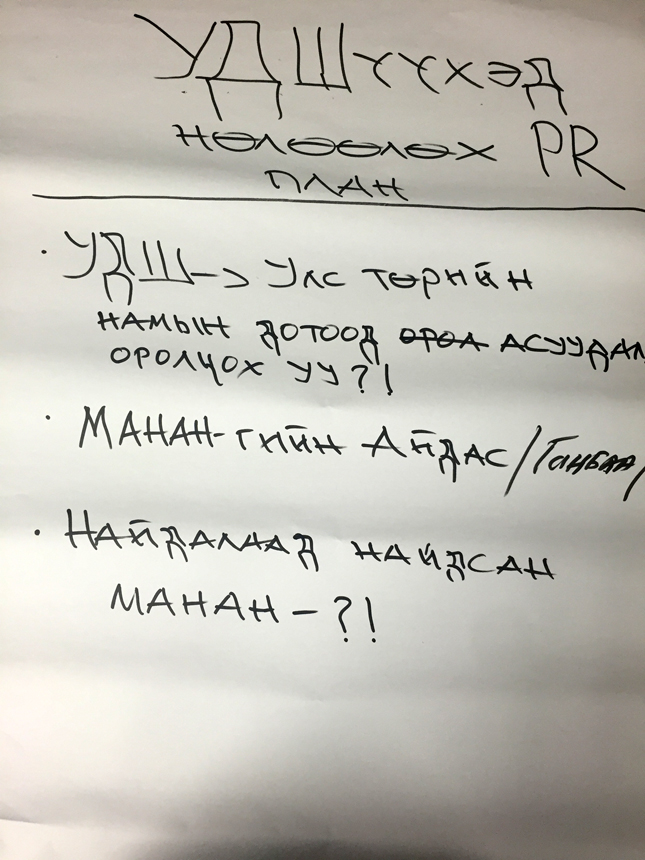 УДШҮҮХЭД
НӨЛӨӨЛӨХ PR
ПЛАН
· УДШ -> УЛС ТӨРИЙН
НАМЫН ДОТООД ОРОЛ АСУУДАЛ
ОРОЛЦОХ УУ?!
· МАНАН-ГИЙН АЙДАС /Ганбаа/
· НАЙДАЛААД НАЙДСАН
МАНАН - ?!